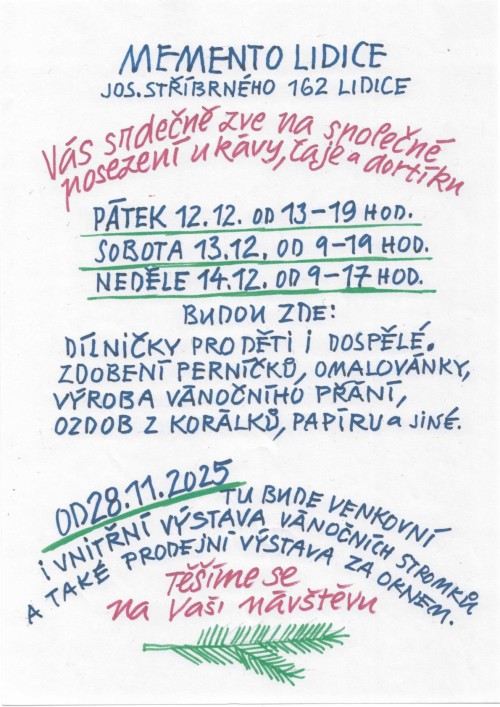 MEMENTO LIDICE
JOS. STŘÍBRNÉHO 162 LIDICE
Vás srdečně zve na společné
posezení u kávy, čaje a dortíku
PÁTEK 12.12. OD 13-19 HOD.
SOBOTA 13.12. OD 9-19 HOD.
NEDĚLE 14.12. OD 9-17 HOD.
BUDOU ZDE:
DÍLNIČKY PRO DĚTI I DOSPĚLÉ.
ZDOBENÍ PERNÍČKŮ, OMALOVÁNKY,
VÝROBA VÁNOČNÍHO PŘÁNÍ,
OZDOB Z KORÁLKŮ, PAPÍRU a JINÉ.
OD 28.11.2025 TU BUDE VENKOVNÍ
I VNITŘNÍ VÝSTAVA VÁNOČNÍCH STROMKŮ
A TAKÉ PRODEJNÍ VÝSTAVA ZA OKNEM.
Těšíme se
na Vaši návštěvu